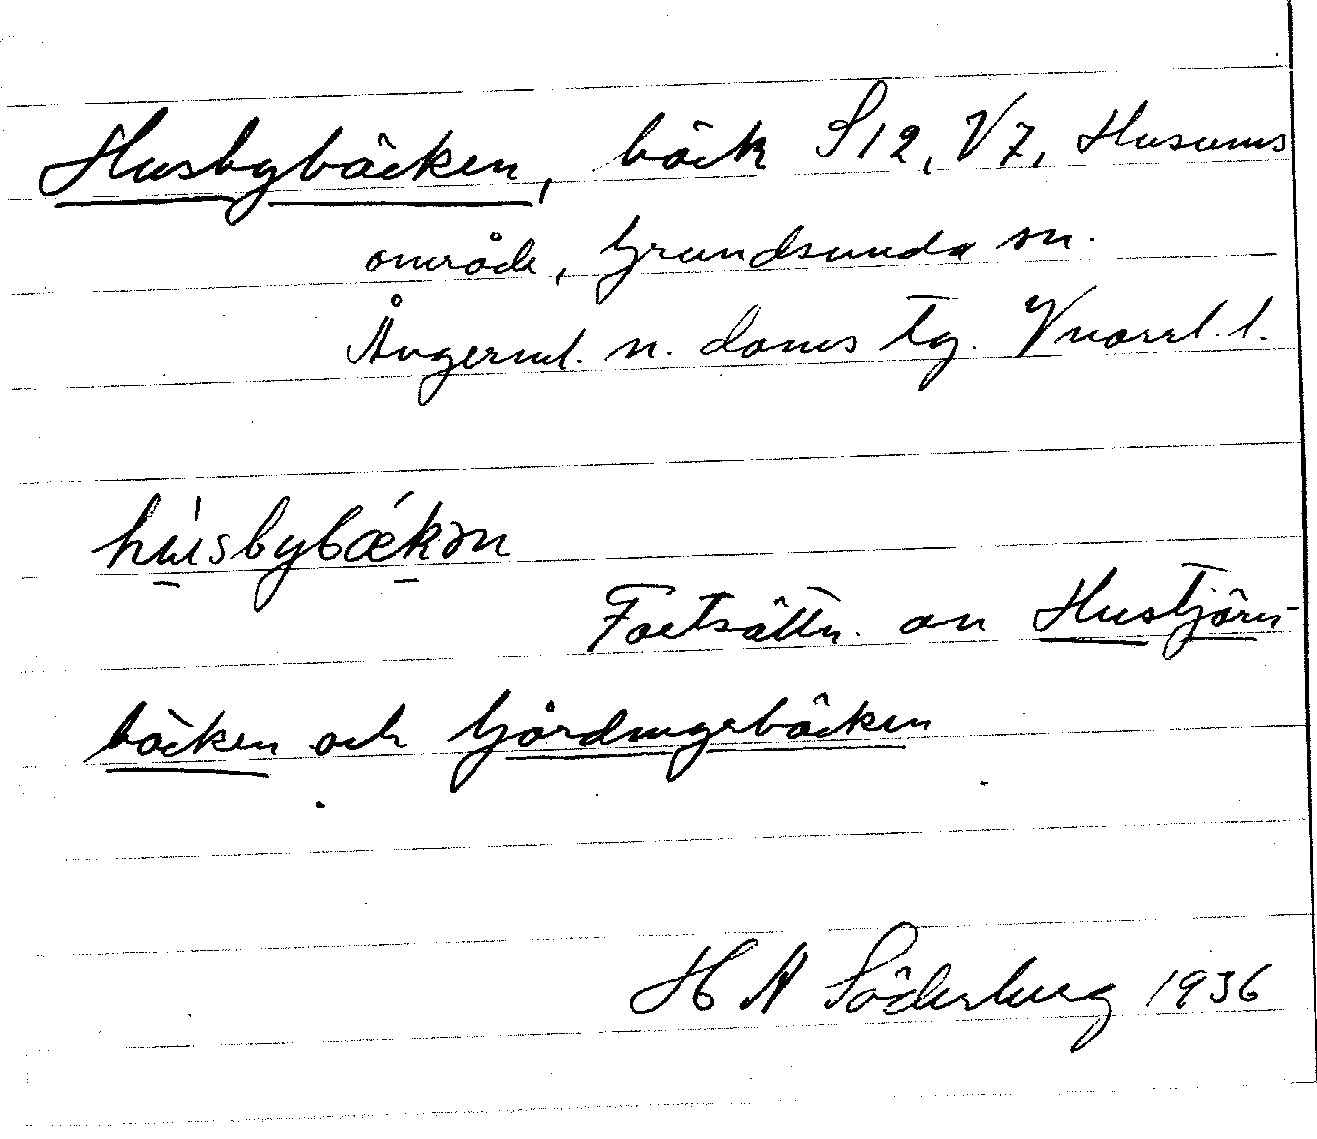 Husbybäcken, bäck S12, V7, Husums
område, Grundsunda sn.
Ångerml. n. doms tg. Vnorrl. l.
hu̱sbybæ̱kən
Fortsättn. av Hustjärn-
bäcken och Gjärdingsbäcken
H A Söderberg 1936